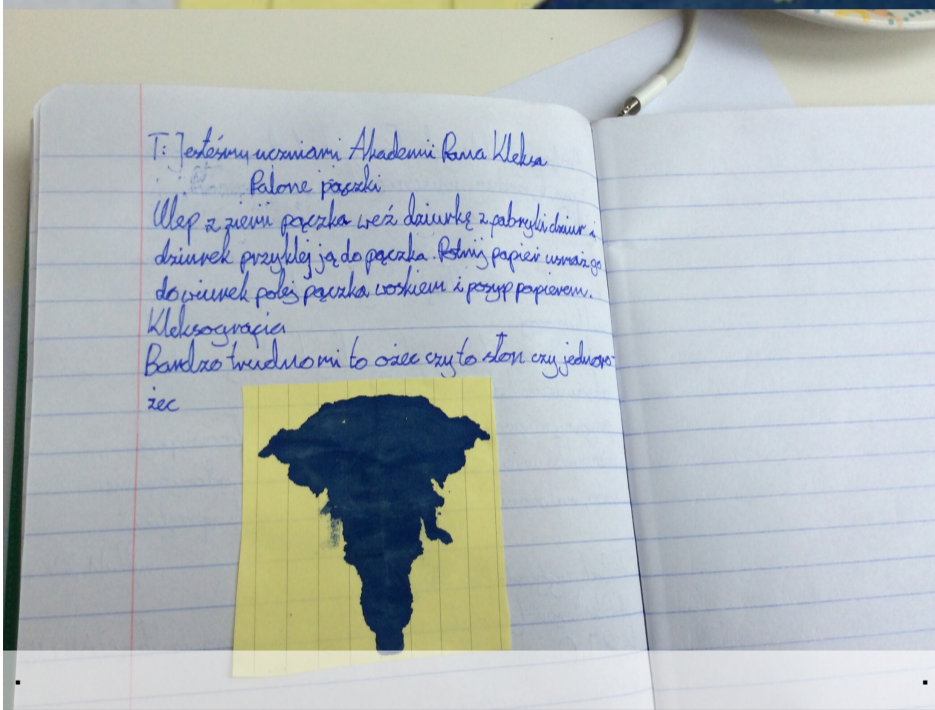 T: Jesteśmy uczniami Akademii Pana Kleksa
Palone pączki
Ulep z ziemi pączka weź dziurkę z fabryki dziur i
dziurek przyklej ją do pączka. Potnij papier usmaż go
do wiurek polej pączka woskiem i posyp papierem.
Kleksografia
Bardzo trudno mi to ożec czy to słoń czy jednoro-
żec